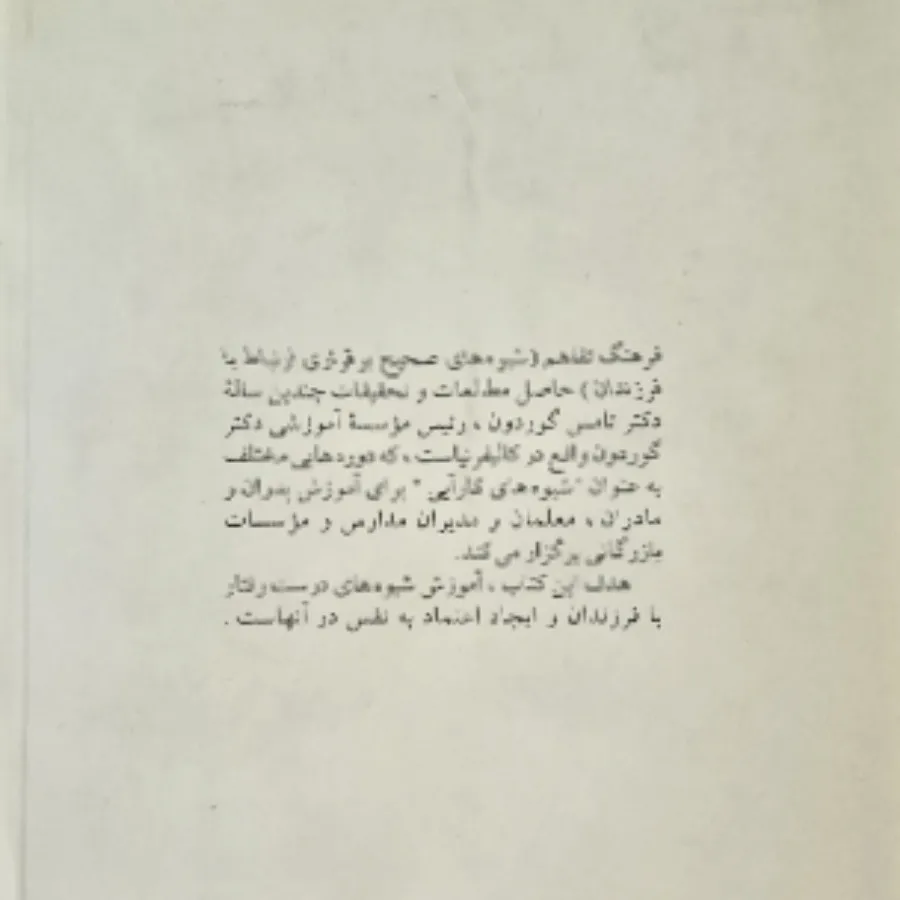 فرهنگ تفاهم (شیوه‌های صحیح برقراری ارتباط با
فرزندان) حاصل مطالعات و تحقیقات چندین سالهٔ
دکتر تامس گوردون ، رئیس مؤسسهٔ آموزشی دکتر
گوردون واقع در کالیفرنیاست ، که دوره‌هایی مختلف
به عنوان "شیوه‌های کارآیی" برای آموزش پدران و
مادران ، معلمان و مدیران مدارس و مؤسسات
بازرگانی برگزار می‌کند.
هدف این کتاب ، آموزش شیوه‌های درست رفتار
با فرزندان و ایجاد اعتماد به نفس در آنهاست .